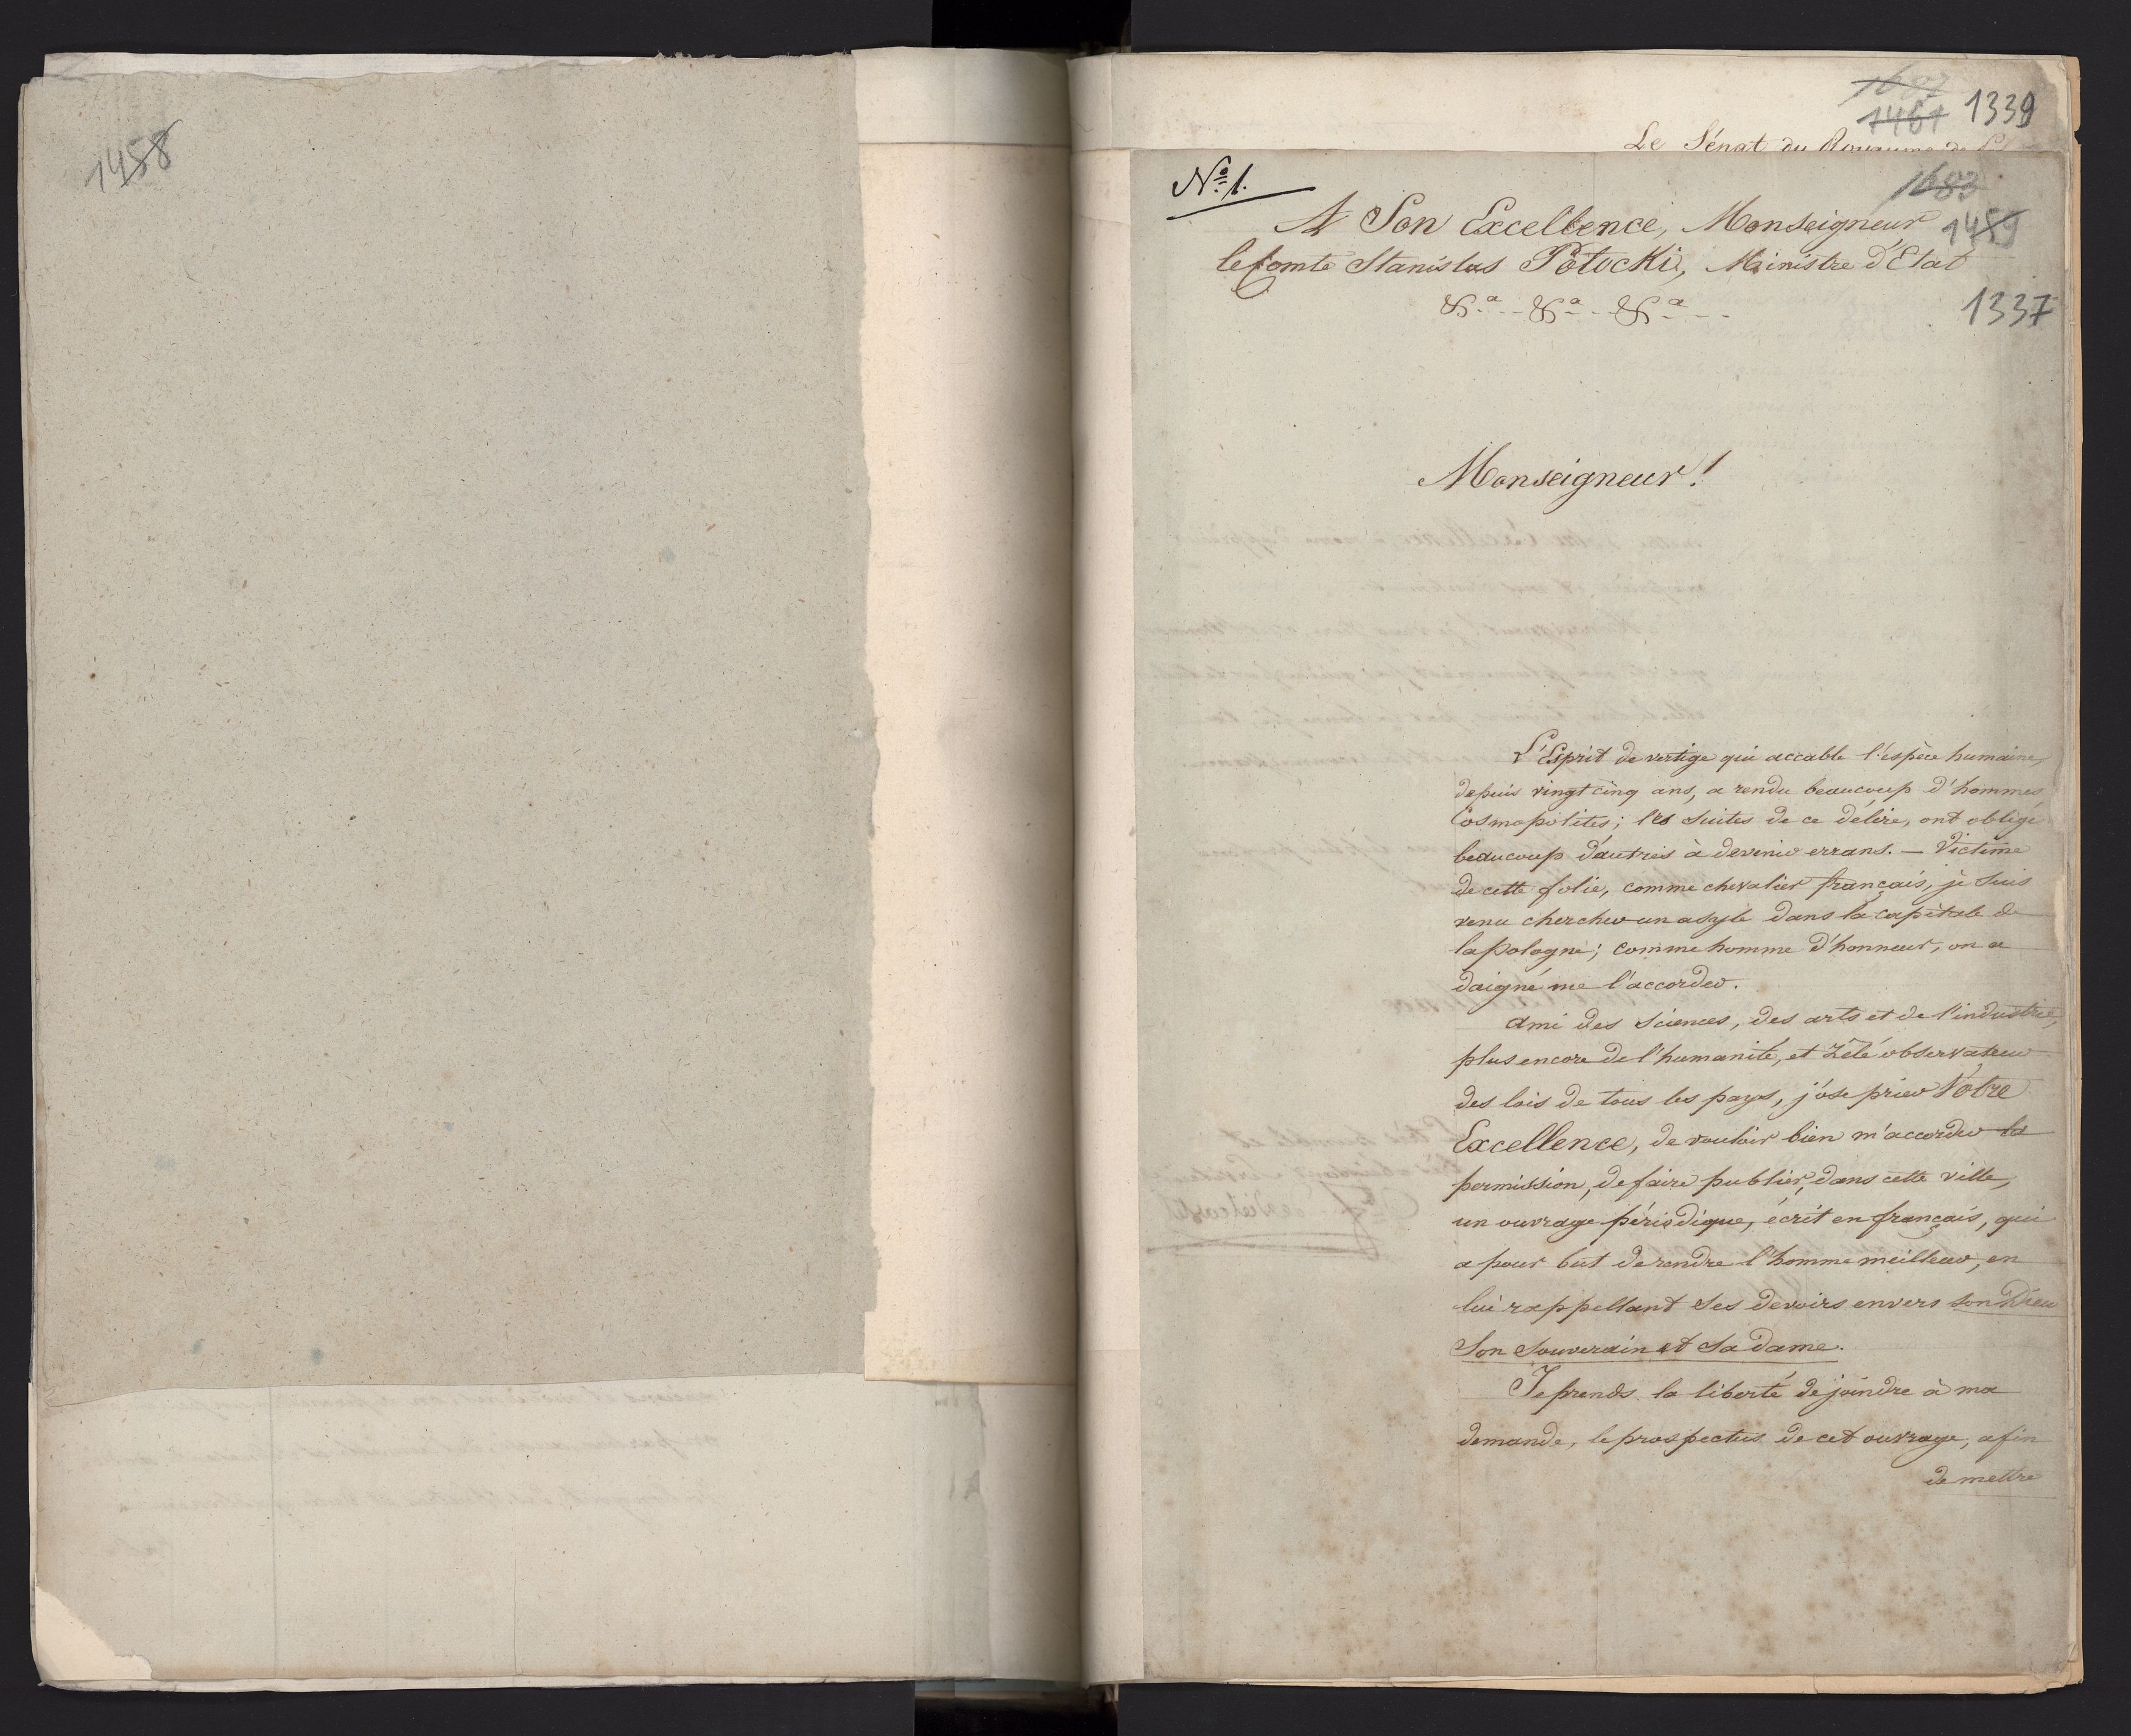 1458
1339
1461
Le Sénat du Royaume de
Nº 1.
1683
A Son Excellence, Monseigneur
1459
le Comte Stanislas Potocki, Ministre d'Etat
&.a - &.a - &.a
1337
Monseigneur!
L'Esprit de vertige qui accable l'éspèce humaine,
depuis vingt cinq ans, a rendu beaucoup d'hommes
Cosmopolites; les suites de ce délire, ont obligé
beaucoup d'autres à devenir errans. — Victime
de cette folie, comme chevalier français, je suis
venu chercher un asyle dans la capitale de
la pologne; comme homme d'honneur, on a
daigné me l'accorder.
Ami des sciences, des arts et de l'industrie,
plus encore de l'humanité, et zélé observateur
des lois de tous les pays, j'ose prier Votre
Excellence, de vouloir bien m'accorder la
permission, de faire publier, dans cette ville,
un ouvrage périodique, écrit en français, qui
a pour but de rendre l'homme meilleur, en
lui rappellant ses devoirs envers son Dieu
Son Souverain et Sa dame.
Je prends la liberté de joindre à ma
demande, le prospectus de cet ouvrage, afin
de mettre